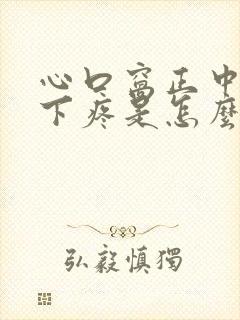 心口窩正中
下疼是怎麼
弘毅慎獨